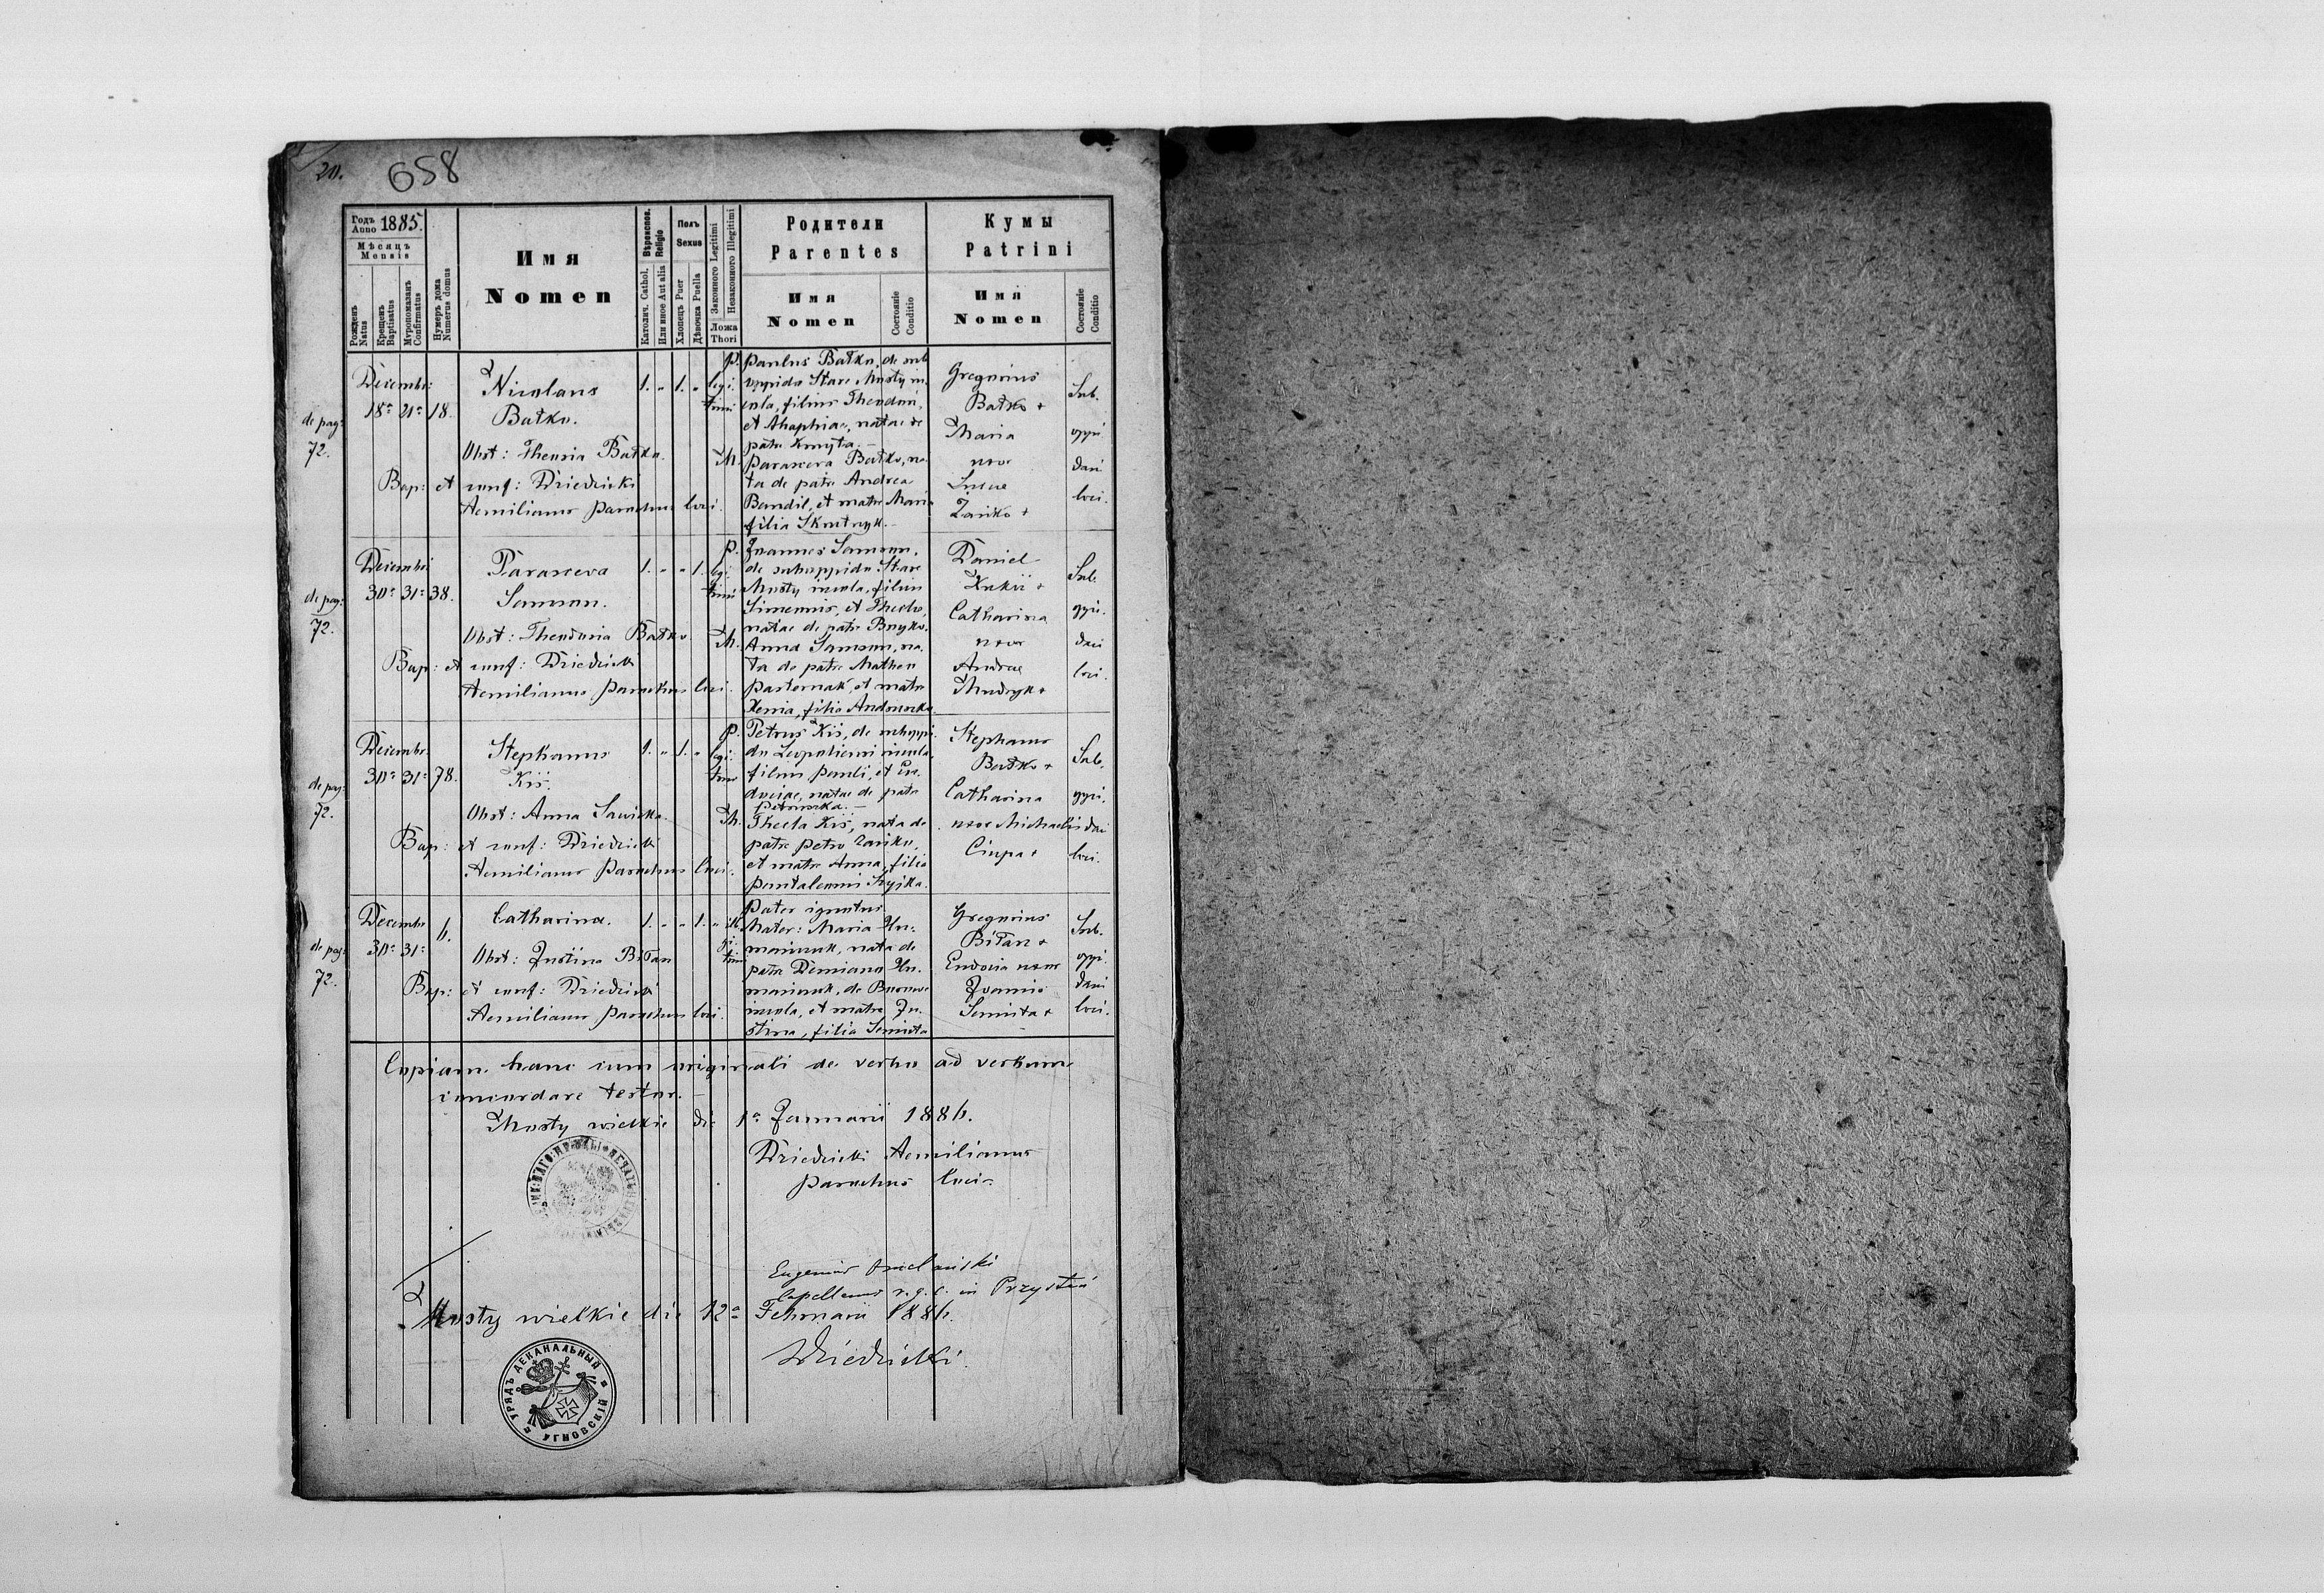 20.
658
Годъ
Anno 1885.
Мѣсяцъ
Mensis
Рожденъ
Natus
Крещенъ
Baptisatus
Мѵропомазанъ
Confirmatus
Нумеръ дома
Numerus domus
Имя
Nomen
Вѣроиспов.
Religio
Католич. Cathol.
Или иное Aut alia
Полъ
Sexus
Хлопецъ Puer
Дѣвочка Puella
Законного Legitimi
Незаконного Illegitimi
Ложа
Thori
Родители
Parentes
Имя
Nomen
Состояніе
Conditio
Кумы
Patrini
Имя
Nomen
Состояніе
Conditio
de pag:
72.
Decembri
18ª 21ª 18.
Nicolaus
Bałko.
Obst: Theodosia Bałko.
Bap: et conf: Dziedzicki
Aemilianus parochus loci.
1. „ 1. „
legi.
timi
P. Paulus Bałko, de sub
oppido Stare Mosty in
cola, filius Theodori,
et Ahaphiae, natae de
patre Kmyta. –
M. Parasceva Bałko, na
ta de patre Andrea
Bandil, et matre Maria
filia Skrutnyk. –
Gregorius
Bałko +
Maria
uxor
Lucae
Zańko +
Sub.
oppi
dani
loci.
de pag:
72.
Decembri
30ª 31ª 38.
Parasceva
Samson.
Obst: Theodosia Bałko.
Bap: et conf: Dziedzicki
Aemilianus parochus loci.
1. „ „ 1.
legi.
timi
P. Joannes Samson,
de suboppido Stare
Mosty incola, filius
Simeonis, et Theclae,
natae de patre Buyko.
M. Anna Samson, na
ta de patre Matheo
Pasternak, et matre
Xenia, filia Andruszko.
Daniel
Kukii +
Catharina
uxor
Andreae
Mudryk +
Sub.
oppi.
dani
loci.
de pag:
72.
Decembri
30ª 31ª 78.
Stephanus
Kiś.
Obst: Anna Sawicka.
Bap: et conf: Dziedzicki
Aemilianus parochus loci.
1. „ 1. „
legi.
timi
P. Petrus Kiś, de suboppi
do Leopoliensi incola,
filius Pauli, et Eu
dociae, natae de patre
Petruszka. –
M. Thecla Kiś, nata de
patre Petro Zańko,
et matre Anna, filia
Pantaleonis Kyjka.
Stephanus
Bałko +
Catharina
uxor Michaelis
Ciupa +
Sub.
oppi.
dani
loci.
de pag:
72.
Decembri
30ª 31ª 6.
Catharina.
Obst: Justina Biłan
Bap: et conf: Dziedzicki
Aemilianus parochus loci.
1. „ „ 1. „
ille
gi.
timi
Pater ignotus
Mater: Maria
nata de
patre Demiano
de
incola, et matre Ju
stina, filia Seniuta
Gregorius
Biłan +
Eudocia uxor
Joannis
Seniuta +
Sub.
oppi.
dani
loci.
Copiam hanc cum originali de verbo ad verbum
concordare testor. –
Mosty wielkie die 1ª Januarii 1886.
Dziedzicki Aemilianus
parochus loci.
Eugenius
Capellanus r.g.c. in Przystań
Mosty wielkie die 12ª Februarii 1886.
Dziedzicki
УРЯДЪ ДЕКАНАЛЬНЫЙ УГНОВСКІЙ